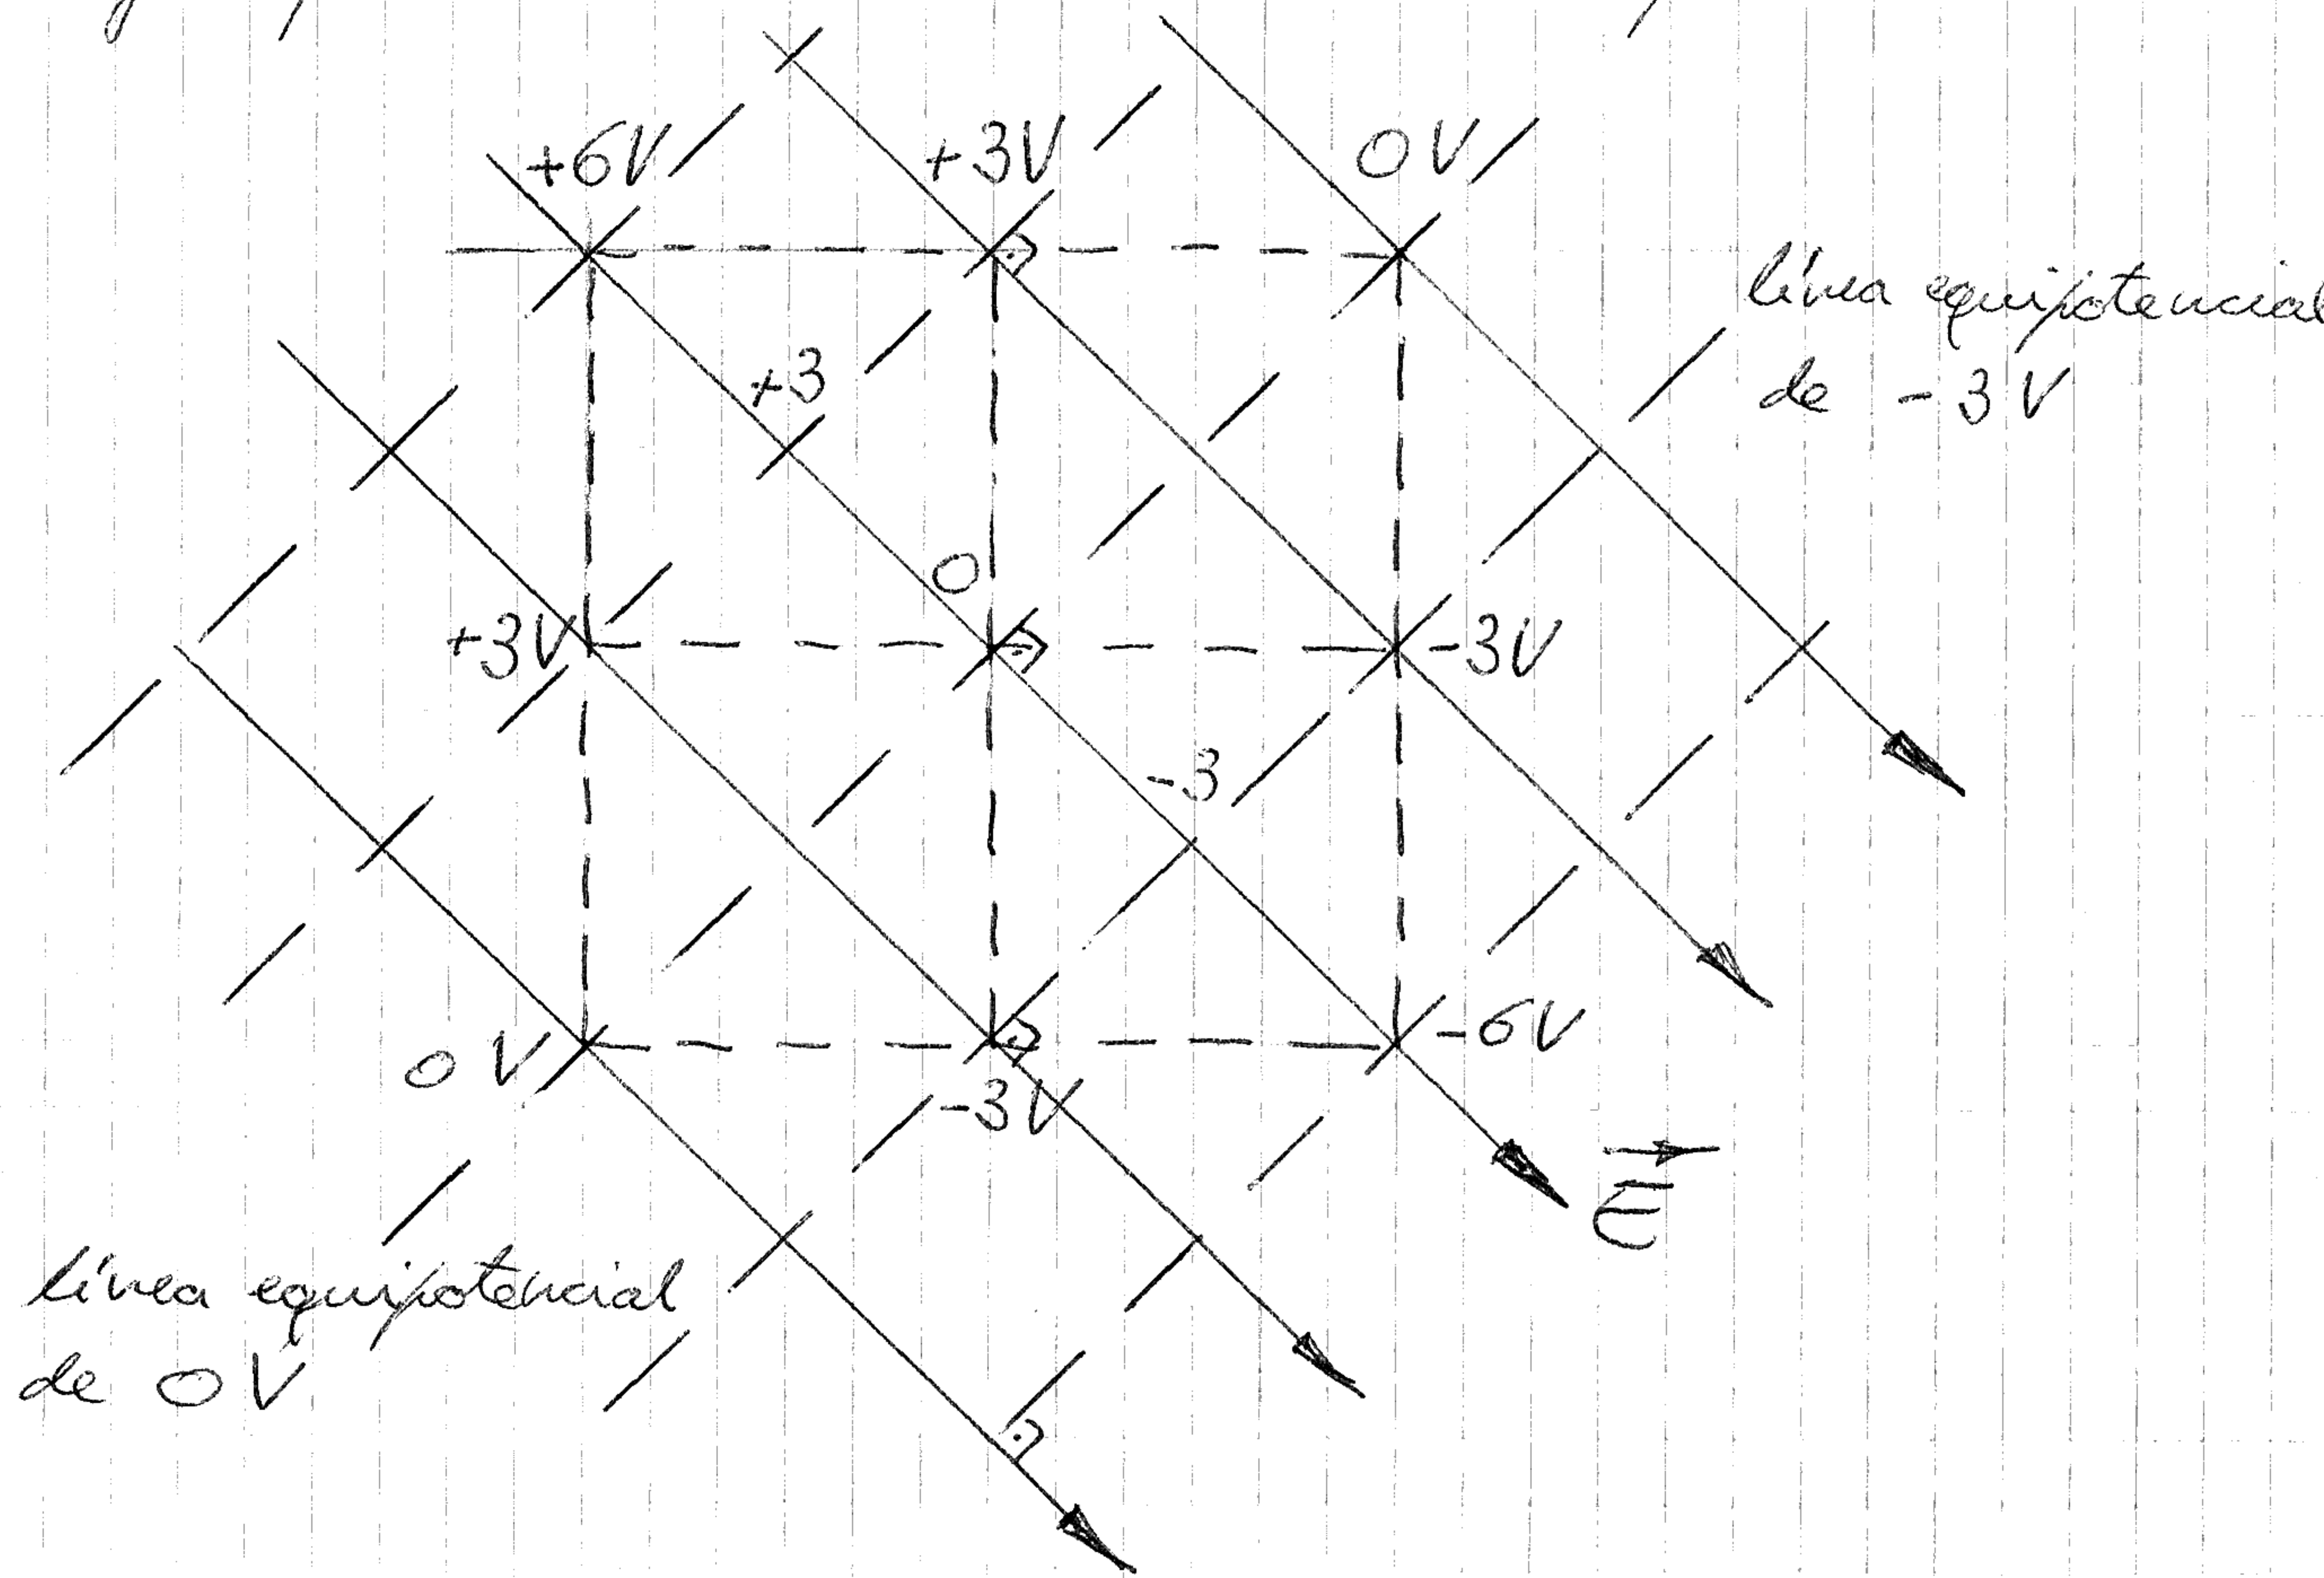 +6V +3V 0V
línea equipotencial
de -3V
+3
0
+3V -3V
-3
0V -3V -6V
E
línea equipotencial
de 0V